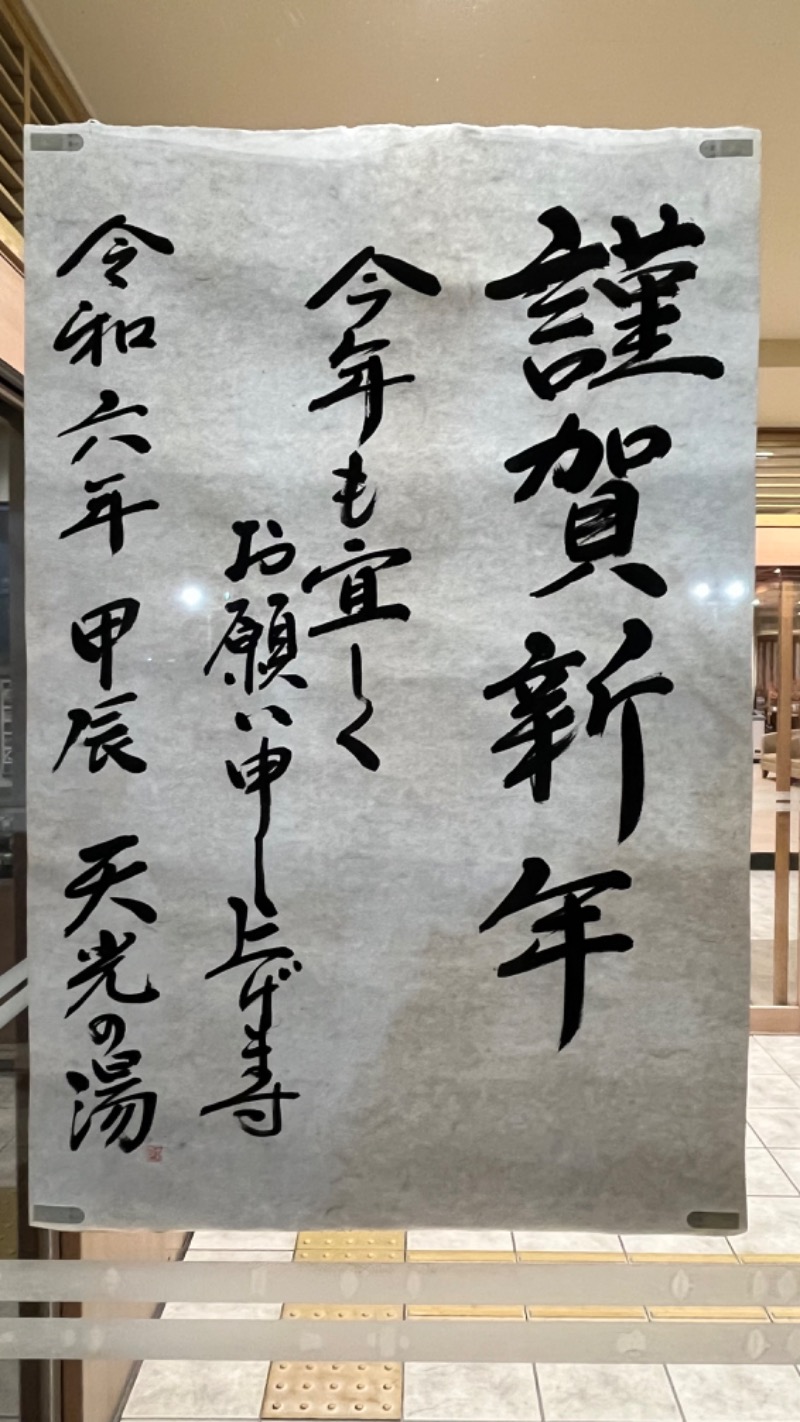 謹賀新年
今年も宜しく
お願い申し上げま寿
令和六年 甲辰 天光の湯